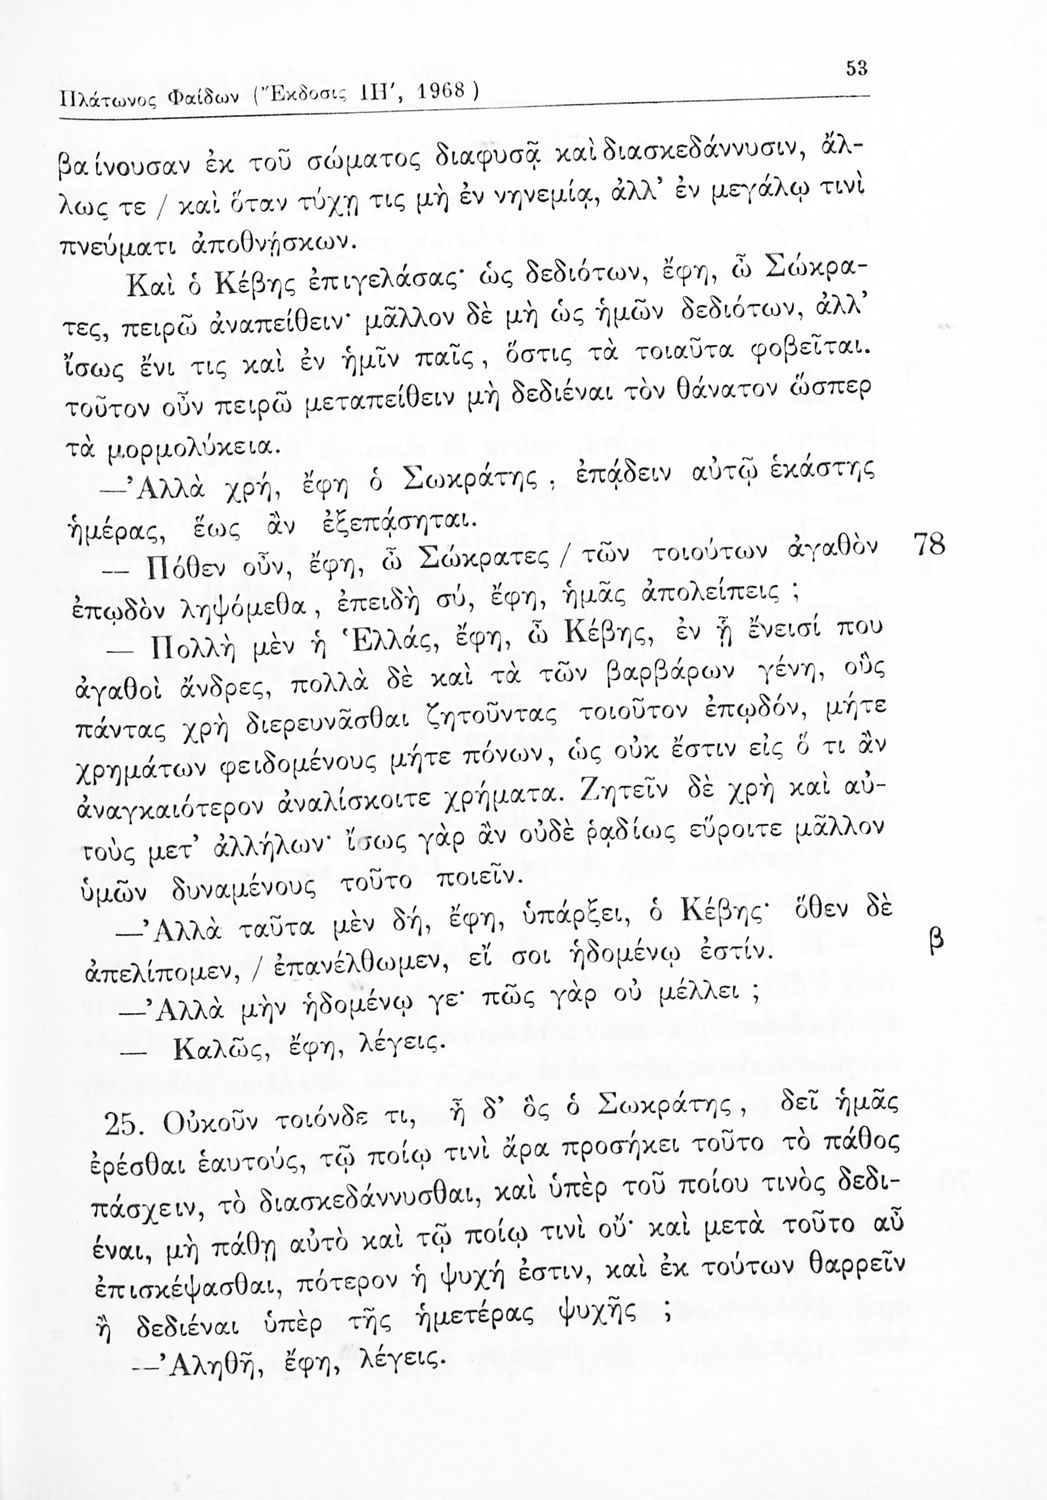 53
Πλάτωνος Φαίδων (Ἔκδοσις ΙΗ', 1968)
βαίνουσαν ἐκ τοῦ σώματος διαφυσᾷ καὶ διασκεδάννυσιν, ἄλ-
λως τε / καὶ ὅταν τύχῃ τις μὴ ἐν νηνεμίᾳ, ἀλλ' ἐν μεγάλῳ τινὶ
πνεύματι ἀποθνῄσκων.
Καὶ ὁ Κέβης ἐπιγελάσας· ὡς δεδιότων, ἔφη, ὦ Σώκρα-
τες, πειρῶ ἀναπείθειν· μᾶλλον δὲ μὴ ὡς ἡμῶν δεδιότων, ἀλλ'
ἴσως ἔνι τις καὶ ἐν ἡμῖν παῖς, ὅστις τὰ τοιαῦτα φοβεῖται.
τοῦτον οὖν πειρῶ μεταπείθειν μὴ δεδιέναι τὸν θάνατον ὥσπερ
τὰ μορμολύκεια.
—Ἀλλὰ χρή, ἔφη ὁ Σωκράτης, ἐπᾴδειν αὐτῷ ἑκάστης
ἡμέρας, ἕως ἂν ἐξεπᾴσηται.
— Πόθεν οὖν, ἔφη, ὦ Σώκρατες / τῶν τοιούτων ἀγαθὸν 78
ἐπῳδὸν ληψόμεθα, ἐπειδὴ σύ, ἔφη, ἡμᾶς ἀπολείπεις ;
— Πολλὴ μὲν ἡ Ἑλλάς, ἔφη, ὦ Κέβης, ἐν ᾗ ἔνεισί που
ἀγαθοὶ ἄνδρες, πολλὰ δὲ καὶ τὰ τῶν βαρβάρων γένη, οὓς
πάντας χρὴ διερευνᾶσθαι ζητοῦντας τοιοῦτον ἐπῳδόν, μήτε
χρημάτων φειδομένους μήτε πόνων, ὡς οὐκ ἔστιν εἰς ὅ τι ἂν
ἀναγκαιότερον ἀναλίσκοιτε χρήματα. Ζητεῖν δὲ χρὴ καὶ αὐ-
τοὺς μετ' ἀλλήλων· ἴσως γὰρ ἂν οὐδὲ ῥᾳδίως εὕροιτε μᾶλλον
ὑμῶν δυναμένους τοῦτο ποιεῖν.
—Ἀλλὰ ταῦτα μὲν δή, ἔφη, ὑπάρξει, ὁ Κέβης· ὅθεν δὲ
ἀπελίπομεν, / ἐπανέλθωμεν, εἴ σοι ἡδομένῳ ἐστίν. β
—Ἀλλὰ μὴν ἡδομένῳ γε· πῶς γὰρ οὐ μέλλει ;
— Καλῶς, ἔφη, λέγεις.
25. Οὐκοῦν τοιόνδε τι, ἦ δ' ὃς ὁ Σωκράτης, δεῖ ἡμᾶς
ἐρέσθαι ἑαυτούς, τῷ ποίῳ τινὶ ἄρα προσήκει τοῦτο τὸ πάθος
πάσχειν, τὸ διασκεδάννυσθαι, καὶ ὑπὲρ τοῦ ποίου τινὸς δεδι-
έναι, μὴ πάθῃ αὐτὸ καὶ τῷ ποίῳ τινὶ οὔ· καὶ μετὰ τοῦτο αὖ
ἐπισκέψασθαι, πότερον ἡ ψυχή ἐστιν, καὶ ἐκ τούτων θαρρεῖν
ἢ δεδιέναι ὑπὲρ τῆς ἡμετέρας ψυχῆς ;
—Ἀληθῆ, ἔφη, λέγεις.